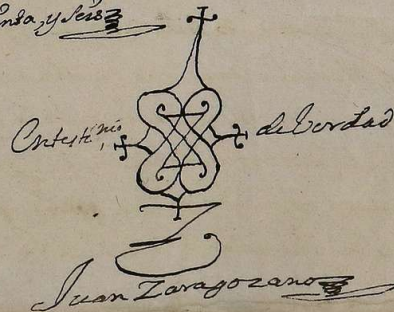 enta, y seis
En testi^nio de Verdad
Juan Zaragozano